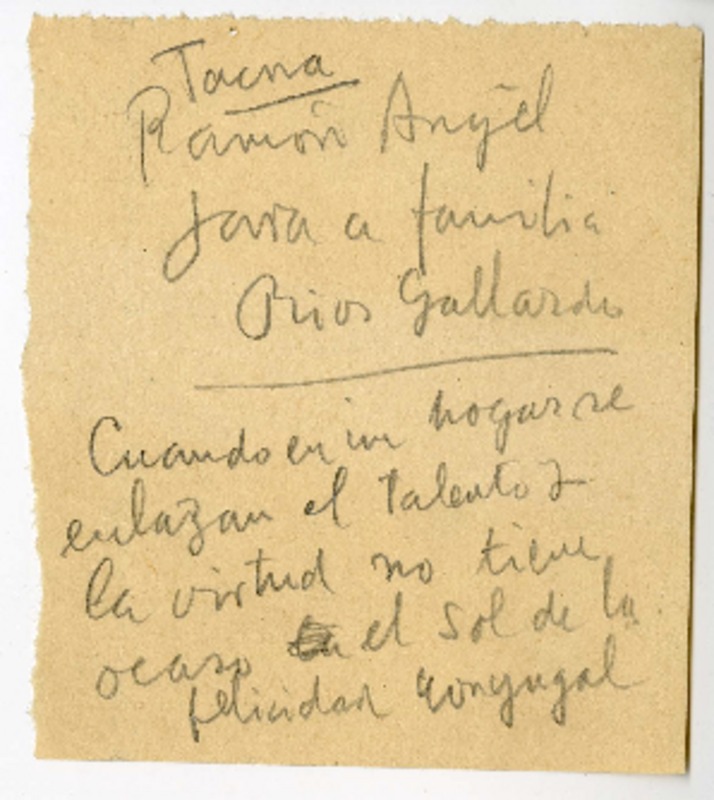 Tacna
Ramón Angel
Jara a familia
Rios Gallardo
Cuando en un hogar se
enlazan el talento y
la virtud no tiene
ocaso el sol de la
felicidad conyugal